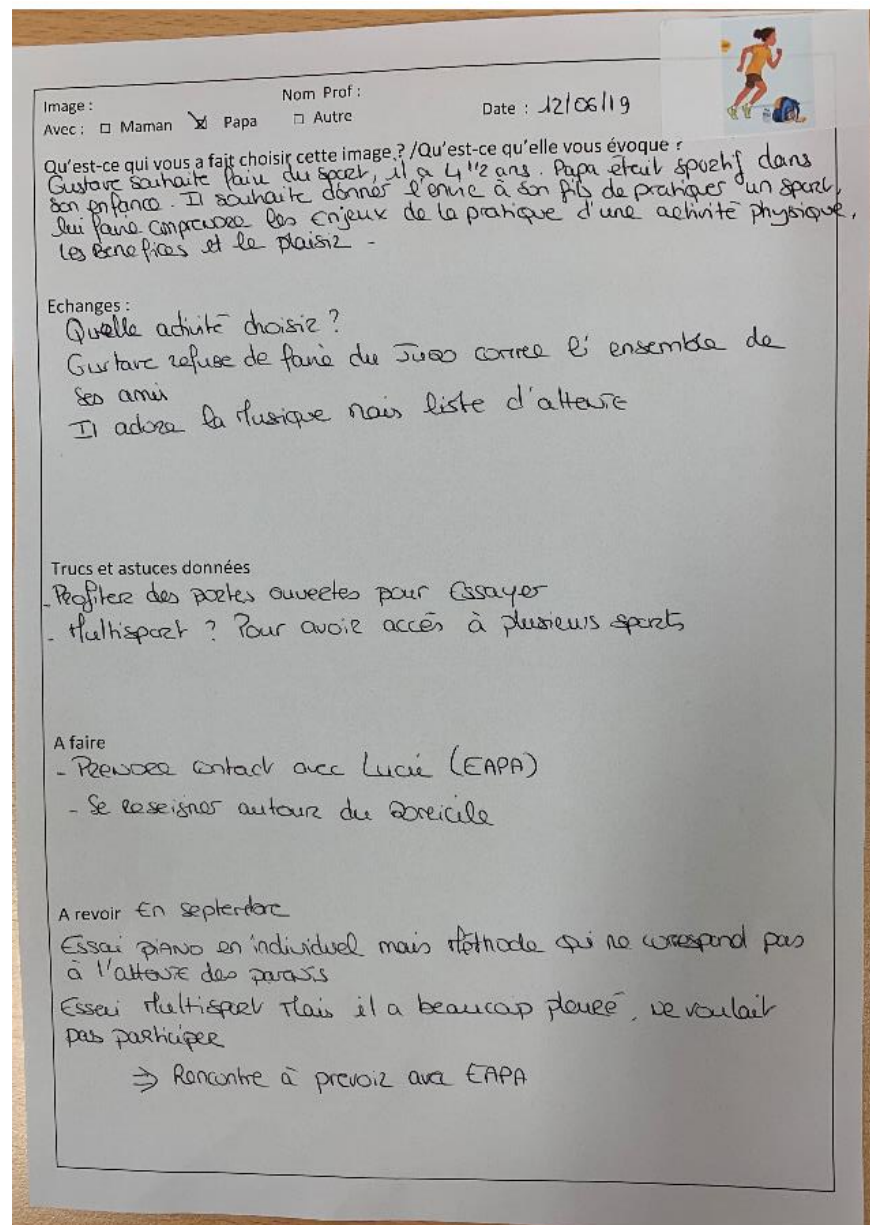 Image :
Nom Prof :
Avec : □ Maman ☒ Papa □ Autre
Date : 12/06/19
Qu'est-ce qui vous a fait choisir cette image ? /Qu'est-ce qu'elle vous évoque ?
Gustave souhaite faire du sport, il a 4 1/2 ans. Papa était sportif dans
son enfance. Il souhaite donner l'envie à son fils de pratiquer un sport,
lui faire comprendre les enjeux de la pratique d'une activité physique,
les Benefices et le plaisir -
Echanges :
Quelle activité choisir ?
Gustave refuse de faire du Judo comme l'ensemble de
ses amis
Il adore la Musique mais liste d'attente
Trucs et astuces données
- Profiter des portes ouvertes pour Essayer
- Multisport ? Pour avoir accés à plusieurs sports
A faire
- Prendre contact avec Lucie (EAPA)
- Se renseigner autour du Domicile
A revoir En septembre
Essai PIANO en individuel mais Méthode qui ne correspond pas
à l'attente des parents
Essai Multisport Mais il a beaucoup pleuré, ne voulait
pas participer
⇒ Rencontre à prevoir avec EAPA